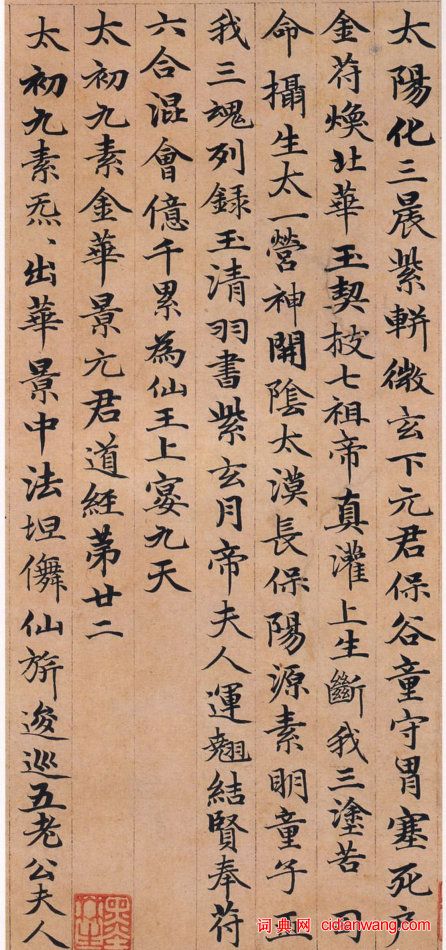 太陽化三晨紫軿徴玄下元君保谷童守胃塞死户
金苻煥北華玉契披七祖帝真灌上生斷我三塗苦日
命攝生太一營神開陰太漠長保陽源素明童子
我三魂列錄玉清羽書紫玄月帝夫人運翹結賢奉苻
六合混會億千累為仙王上宴九天
太初九素金華景元君道經苐廿二
太初九素炁、出華景中法坦儛仙旂逡巡五老公夫人
词典网 cidianwang.com